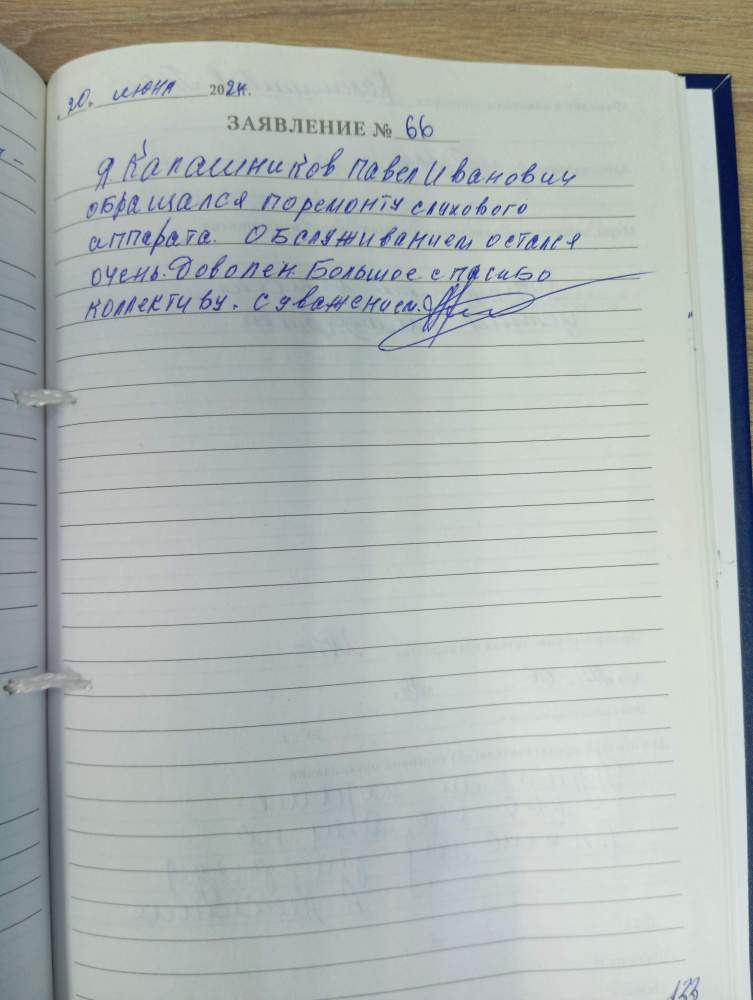 20. июня 2024г.
ЗАЯВЛЕНИЕ № 66
Я Калашников Павел Иванович
обращался по ремонту слухового
аппарата. Обслуживанием остался
очень. Доволен Большое спасибо
коллективу. С уважением.
123